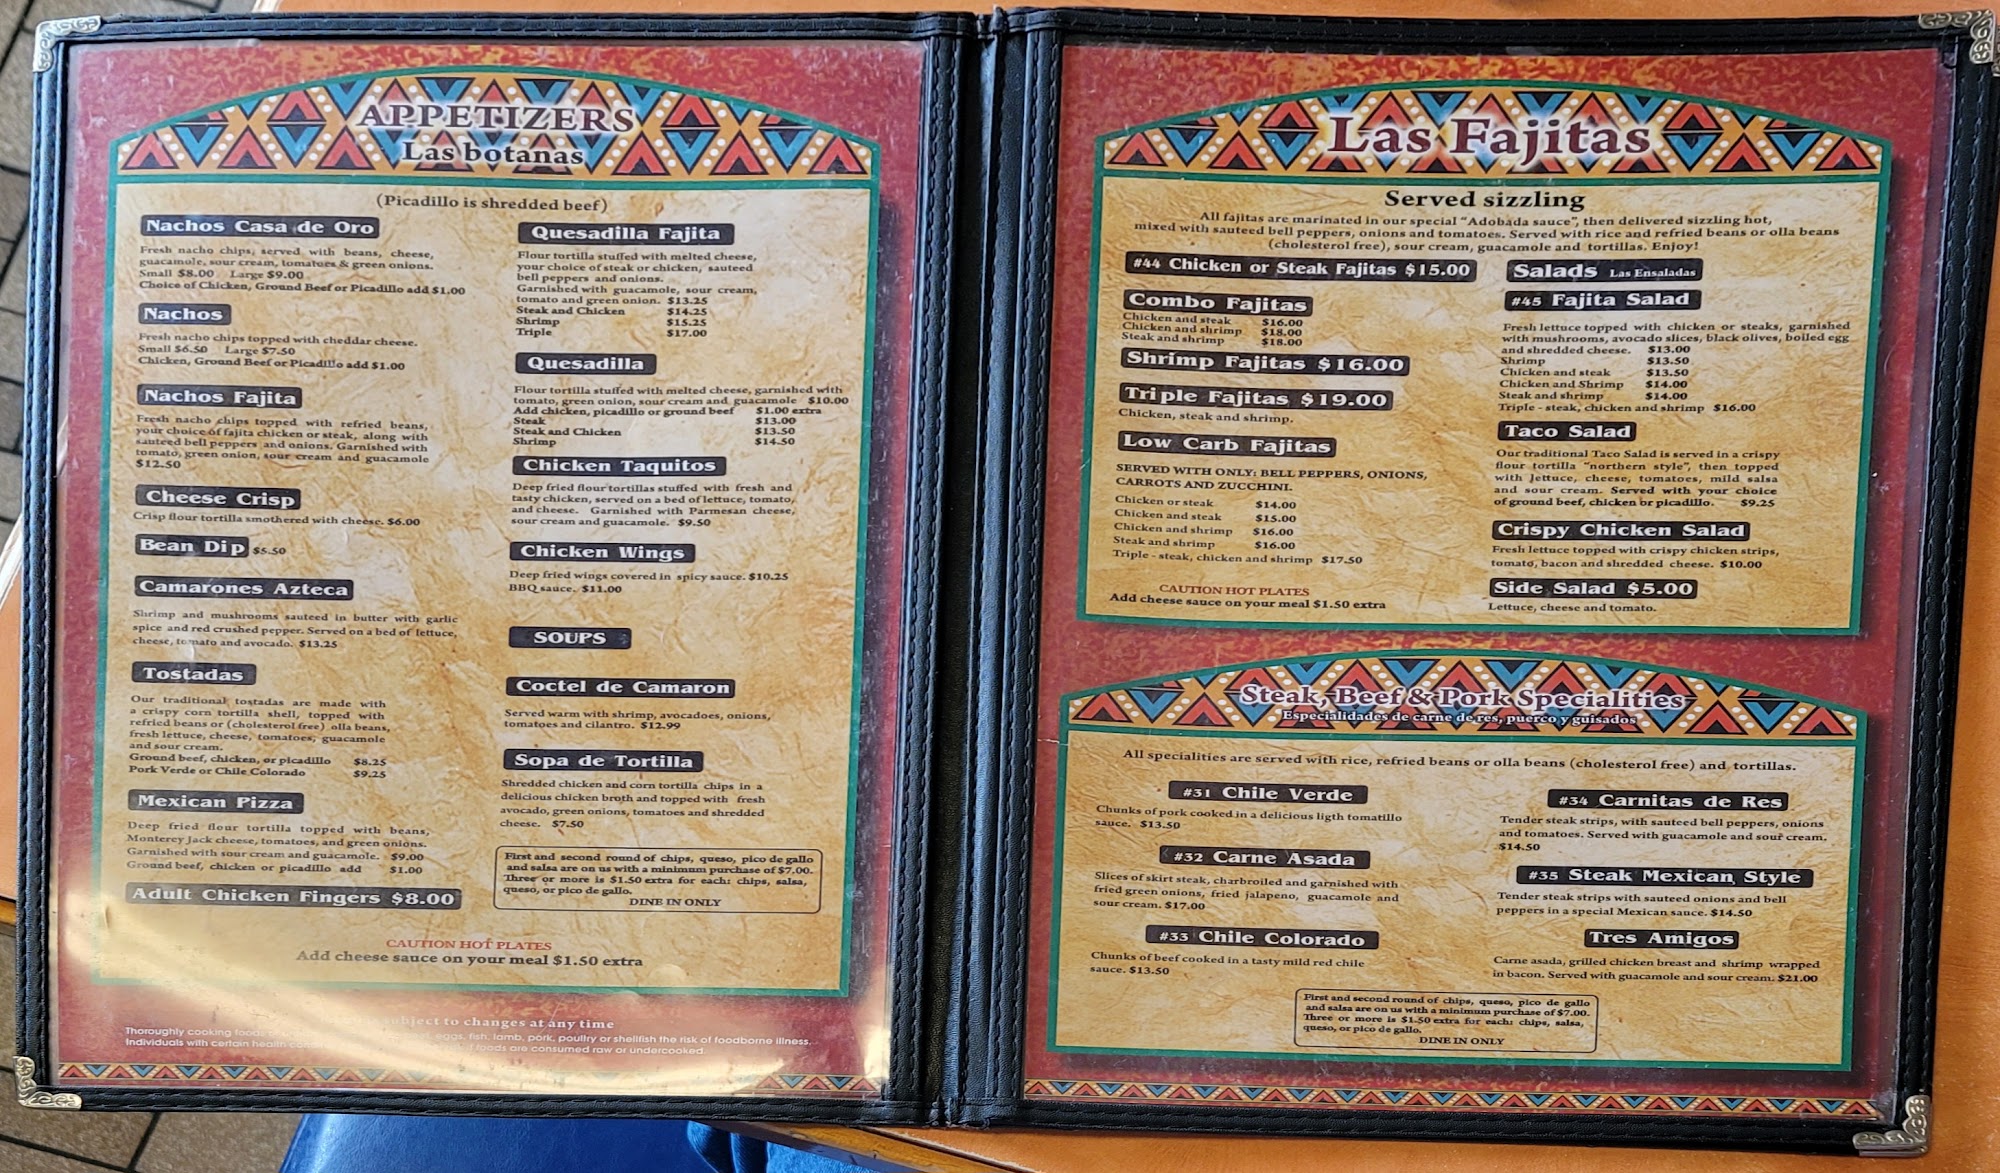 APPETIZERS
Las botanas
(Picadillo is shredded beef)
Nachos Casa de Oro
Fresh nacho chips, served with beans, cheese,
guacamole, sour cream, tomatoes & green onions.
Small $8.00 Large $9.00
Choice of Chicken, Ground Beef or Picadillo add $1.00
Nachos
Fresh nacho chips topped with cheddar cheese.
Small $6.50 Large $7.50
Chicken, Ground Beef or Picadillo add $1.00
Nachos Fajita
Fresh nacho chips topped with refried beans,
your choice of fajita chicken or steak, along with
sauteed bell peppers and onions. Garnished with
tomato, green onion, sour cream and guacamole
$12.50
Cheese Crisp
Crisp flour tortilla smothered with cheese. $6.00
Bean Dip $5.50
Camarones Azteca
Shrimp and mushrooms sauteed in butter with garlic
spice and red crushed pepper. Served on a bed of lettuce,
cheese, tomato and avocado. $13.25
Tostadas
Our traditional tostadas are made with
a crispy corn tortilla shell, topped with
refried beans or (cholesterol free) olla beans,
fresh lettuce, cheese, tomatoes, guacamole
and sour cream.
Ground beef, chicken, or picadillo $8.25
Pork Verde or Chile Colorado $9.25
Mexican Pizza
Deep fried flour tortilla topped with beans,
Monterey Jack cheese, tomatoes, and green onions.
Garnished with sour cream and guacamole. $9.00
Ground beef, chicken or picadillo add $1.00
Adult Chicken Fingers $8.00
Quesadilla Fajita
Flour tortilla stuffed with melted cheese,
your choice of steak or chicken, sauteed
bell peppers and onions.
Garnished with guacamole, sour cream,
tomato and green onion. $13.25
Steak and Chicken $14.25
Shrimp $15.25
Triple $17.00
Quesadilla
Flour tortilla stuffed with melted cheese, garnished with
tomato, green onion, sour cream and guacamole $10.00
Add chicken, picadillo or ground beef $1.00 extra
Steak $13.00
Steak and Chicken $13.50
Shrimp $14.50
Chicken Taquitos
Deep fried flour tortillas stuffed with fresh and
tasty chicken, served on a bed of lettuce, tomato,
and cheese. Garnished with Parmesan cheese,
sour cream and guacamole. $9.50
Chicken Wings
Deep fried wings covered in spicy sauce. $10.25
BBQ sauce. $11.00
SOUPS
Coctel de Camaron
Served warm with shrimp, avocadoes, onions,
tomatoes and cilantro. $12.99
Sopa de Tortilla
Shredded chicken and corn tortilla chips in a
delicious chicken broth and topped with fresh
avocado, green onions, tomatoes and shredded
cheese. $7.50
First and second round of chips, queso, pico de gallo
and salsa are on us with a minimum purchase of $7.00.
Three or more is $1.50 extra for each: chips, salsa,
queso, or pico de gallo.
DINE IN ONLY
CAUTION HOT PLATES
Add cheese sauce on your meal $1.50 extra
subject to changes at any time
Thoroughly cooking foods eggs, fish, lamb, pork, poultry or shellfish the risk of foodborne illness.
Individuals with certain health foods are consumed raw or undercooked.
Las Fajitas
Served sizzling
All fajitas are marinated in our special "Adobada sauce", then delivered sizzling hot,
mixed with sauteed bell peppers, onions and tomatoes. Served with rice and refried beans or olla beans
(cholesterol free), sour cream, guacamole and tortillas. Enjoy!
#44 Chicken or Steak Fajitas $15.00
Combo Fajitas
Chicken and steak $16.00
Chicken and shrimp $18.00
Steak and shrimp $18.00
Shrimp Fajitas $16.00
Triple Fajitas $19.00
Chicken, steak and shrimp.
Low Carb Fajitas
SERVED WITH ONLY: BELL PEPPERS, ONIONS,
CARROTS AND ZUCCHINI.
Chicken or steak $14.00
Chicken and steak $15.00
Chicken and shrimp $16.00
Steak and shrimp $16.00
Triple - steak, chicken and shrimp $17.50
CAUTION HOT PLATES
Add cheese sauce on your meal $1.50 extra
Salads Las Ensaladas
#45 Fajita Salad
Fresh lettuce topped with chicken or steaks, garnished
with mushrooms, avocado slices, black olives, boiled egg
and shredded cheese. $13.00
Shrimp $13.50
Chicken and steak $13.50
Chicken and Shrimp $14.00
Steak and shrimp $14.00
Triple - steak, chicken and shrimp $16.00
Taco Salad
Our traditional Taco Salad is served in a crispy
flour tortilla "northern style", then topped
with lettuce, cheese, tomatoes, mild salsa
and sour cream. Served with your choice
of ground beef, chicken or picadillo. $9.25
Crispy Chicken Salad
Fresh lettuce topped with crispy chicken strips,
tomato, bacon and shredded cheese. $10.00
Side Salad $5.00
Lettuce, cheese and tomato.
Steak, Beef & Pork Specialities
Especialidades de carne de res, puerco y guisados
All specialities are served with rice, refried beans or olla beans (cholesterol free) and tortillas.
#31 Chile Verde
Chunks of pork cooked in a delicious ligth tomatillo
sauce. $13.50
#32 Carne Asada
Slices of skirt steak, charbroiled and garnished with
fried green onions, fried jalapeno, guacamole and
sour cream. $17.00
#33 Chile Colorado
Chunks of beef cooked in a tasty mild red chile
sauce. $13.50
#34 Carnitas de Res
Tender steak strips, with sauteed bell peppers, onions
and tomatoes. Served with guacamole and sour cream.
$14.50
#35 Steak Mexican Style
Tender steak strips with sauteed onions and bell
peppers in a special Mexican sauce. $14.50
Tres Amigos
Carne asada, grilled chicken breast and shrimp wrapped
in bacon. Served with guacamole and sour cream. $21.00
First and second round of chips, queso, pico de gallo
and salsa are on us with a minimum purchase of $7.00.
Three or more is $1.50 extra for each: chips, salsa,
queso, or pico de gallo.
DINE IN ONLY